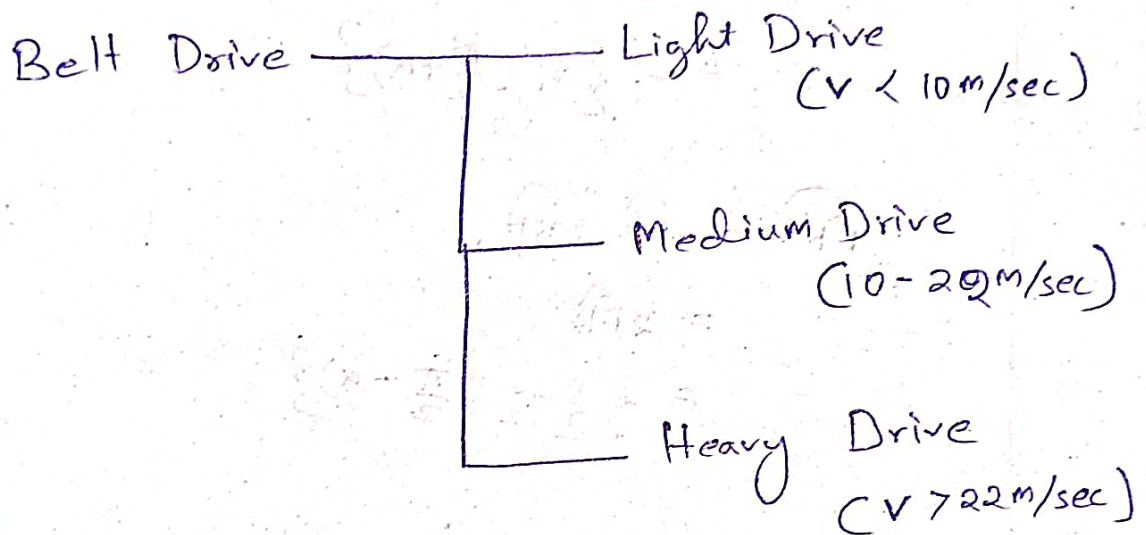 Belt Drive
Light Drive
(V < 10 m/sec)
Medium Drive
(10 - 22 m/sec)
Heavy Drive
(V > 22 m/sec)